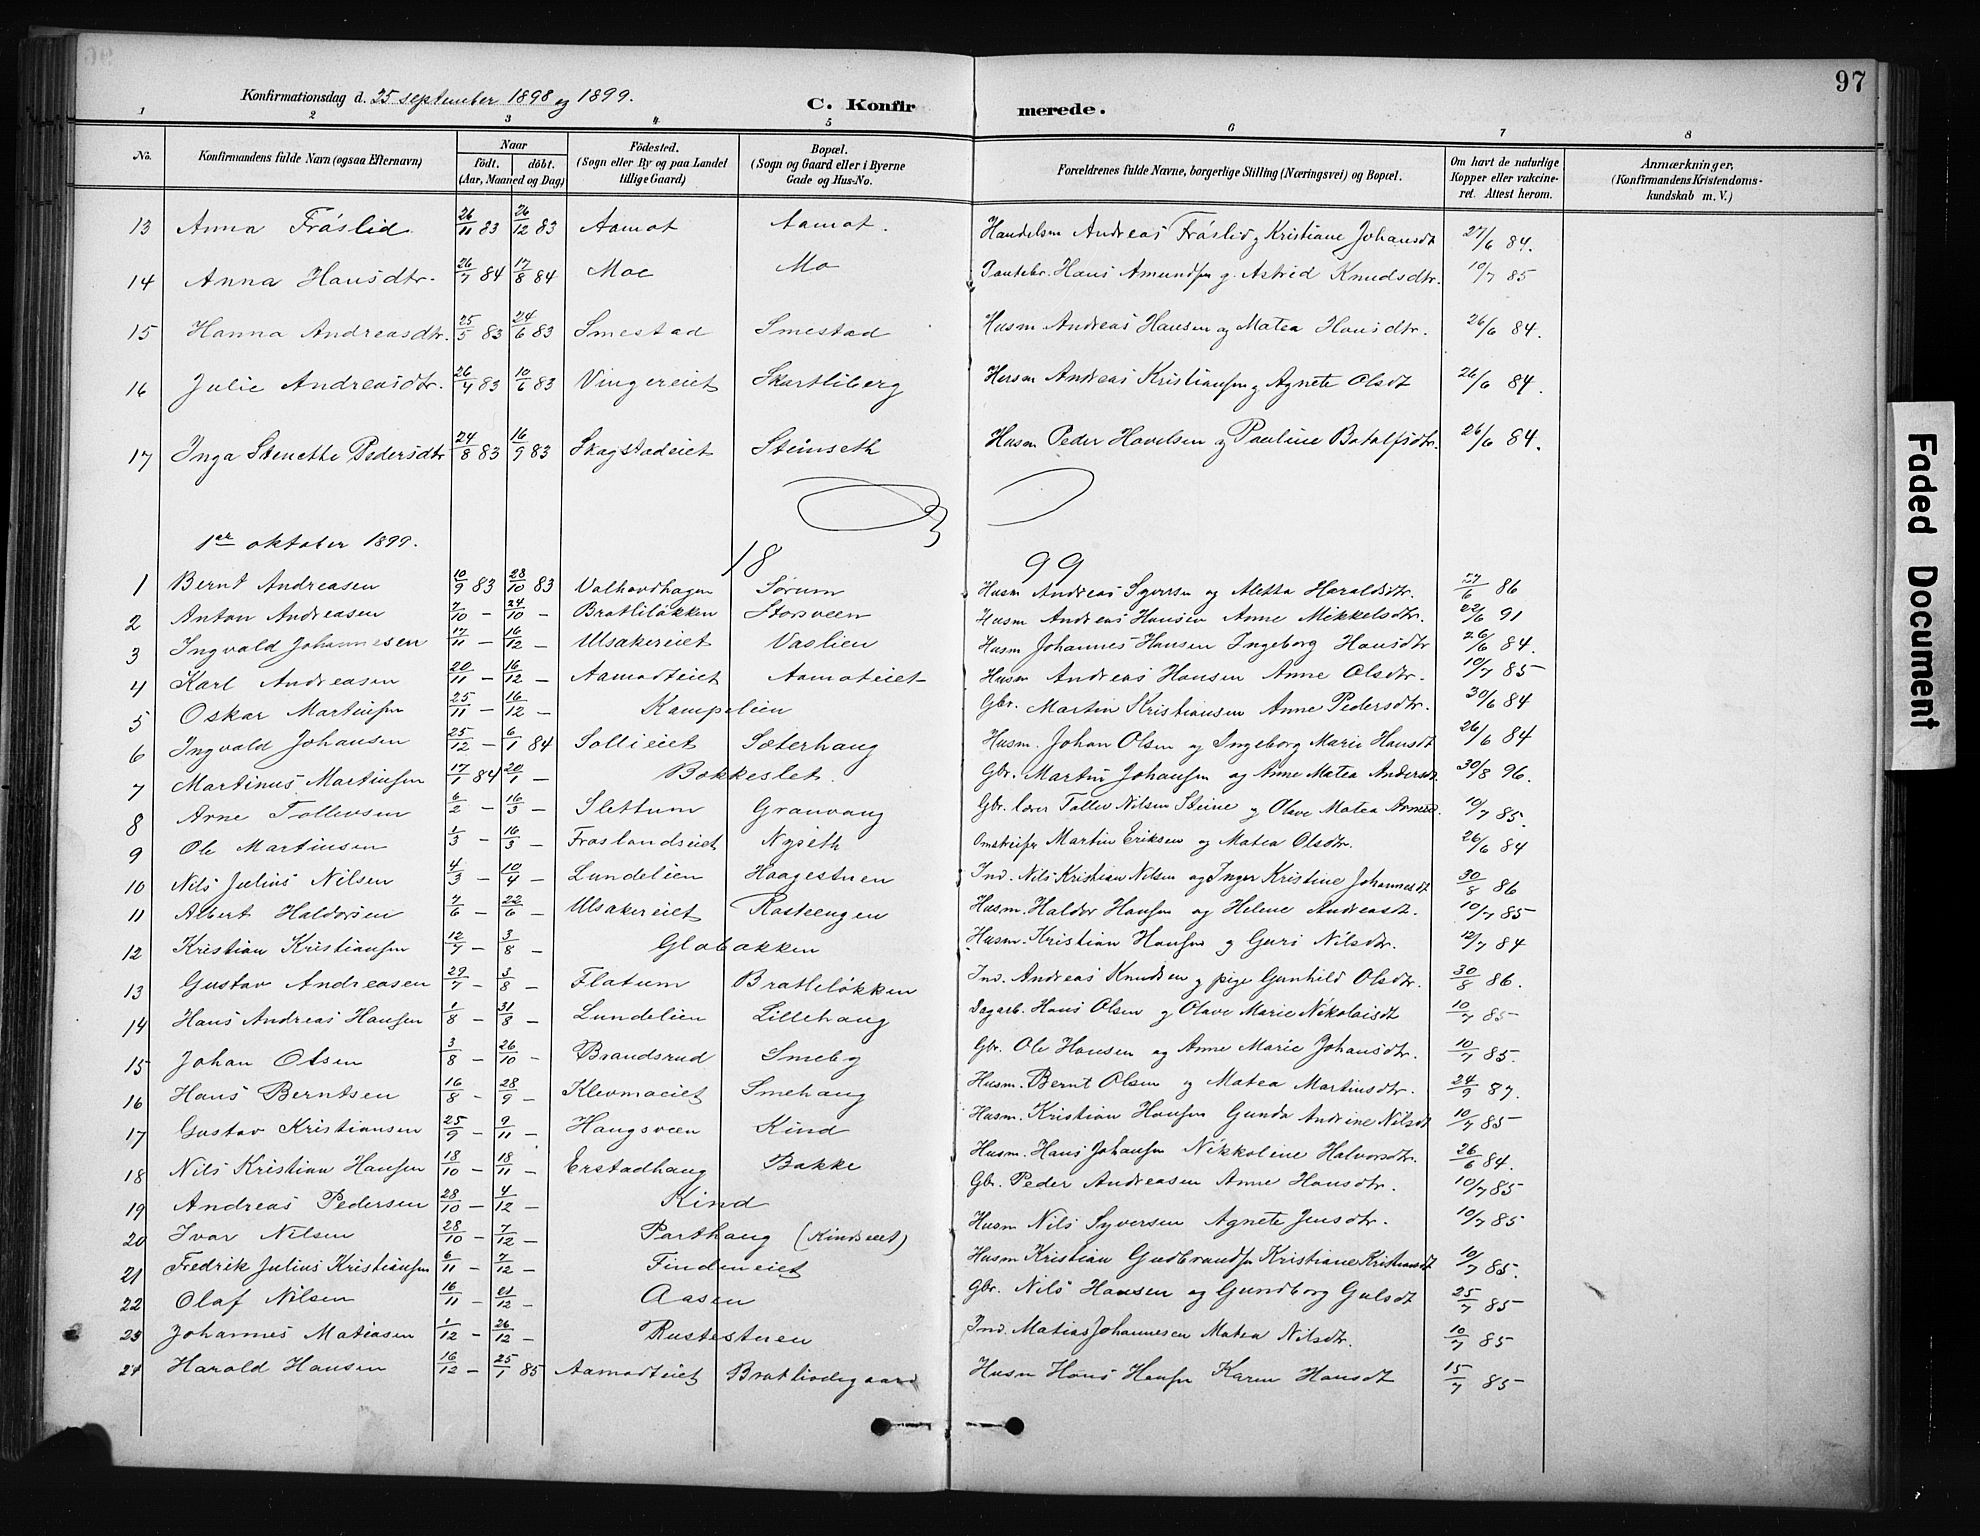 97
Konfirmationsdag d. 25 september 1898 og 1899.
C. Konfir merede.
1 2 3 4 5 6 7 8
No. Konfirmandens fulde Navn (ogsaa Efternavn) Naar födt. döbt. (Aar, Maaned og Dag) Födested. (Sogn eller By og paa Landet tillige Gaard) Bopæl. (Sogn og Gaard eller i Byerne Gade og Hus-No. Forældrenes fulde Navne, borgerlige Stilling (Næringsvei) og Bopæl. Om havt de naturlige Kopper eller vakcineret. Attest herom. Anmærkninger, (Konfirmandens Kristendomskundskab m. V.)
13 Anna Fröslid 26/11 83 26/12 83 Aamot Aamot. Handelsm Andreas Fröslid og Kristiane Johansdt 27/6 84.
14 Anna Hansdtr. 26/7 84 17/8 84 Moe Mo Hans Amundsen g. Astrid Knudsdtr. 10/7 85
15 Hanna Andreasdtr. 25/5 83 24/6 83 Smestad Smestad Husm Andreas Hansen og Matea Hansdtr. 26/6 84.
16 Julie Andreasdtr. 26/4 83 10/6 83 Vingereiet Skartliberg Husm Andreas Kristiansen og Agnete Olsdt 26/6 84.
17 Inga Stenette Pedersdtr 24/8 83 16/9 83 Skagstadeiet Steinseth Husm Peder Havelsen og Pauline Batolfsdtr. 26/6 84.
1er oktober 1899.
18 99
1 Bernt Andreasen 10/9 83 28/10 83 Valhovdhagen Sørum Husm Andreas Syversen og Aletta Haraldsdtr. 27/6 86
2 Anton Andreasen 7/10 - 24/10 - Bratliløkken Storsveen Husm Andreas Hansen Anne Mikkelsdtr. 22/6 91
3 Ingvald Johannesen 17/11 - 16/12 - Ulsakereiet Vaslien Husm Johannes Hansen Ingeborg Hansdtr 26/6 84.
4 Karl Andreasen 20/11 - 16/12 - Aamodteiet Aamoteiet Husm Andreas Hansen Anne Olsdtr. 10/7 85
5 Oskar Martinsen 25/11 - 16/12 - Kampelien Gbr. Martin Kristiansen Anne Pedersdtr. 30/6 84
6 Ingvald Johansen 25/12 - 6/1 84 Sollieiet Sæterhaug Husm. Johan Olsen og Ingeborg Marie Hansdt 26/6 84
7 Martinus Martinsen 17/1 84 20/1 - Bakkeslet. Gbr. Martin Johansen og Anne Matea Andersdt. 30/8 96.
8 Arne Tollevsen 6/2 - 16/3 - Slettum Granvang Gbr. lærer Tollev Nilsen Steine og Olave Matea Arned. 10/7 85.
9 Ole Martinsen 1/3 - 16/3 - Froslandseiet Nyseth Omstreifer Martin Eriksen og Matea Olsdtr. 26/6 84
10 Nils Julius Nilsen 4/3 - 10/4 - Lundelien Haagestuen Ind. Nils Kristian Nilsen og Inger Kristine Johannesdt 30/8 86
11 Albert Haldorsen 7/6 - 22/6 - Ulsakereiet Rasteengen Husm. Haldor Hansen og Helene Andreasdt. 10/7 85
12 Kristian Kristiansen 12/7 - 3/8 - Globakken Husm. Kristian Hansen og Guri Nilsdtr. 12/7 84
13 Gustav Andreasen 29/7 - 3/8 - Flatum Bratteløkken Ind. Andreas Knudsen g pige Gunhild Olsdtr. 30/8 86.
14 Hans Andreas Hansen 1/8 - 31/8 - Lundelien Lillehaug Dagarb. Hans Olsen og Olave Marie Nikolaisdt 10/7 85
15 Johan Olsen 3/8 - 26/10 - Brandsrud Smeby Gbr. Ole Hansen og Anne Marie Johansdtr. 10/7 85.
16 Hans Berntsen 16/8 - 28/9 - Klevmoeiet Smehaug Husm. Bernt Olsen og Matea Martinsdtr. 24/9 87.
17 Gustav Kristiansen 25/9 - 9/11 - Haugsveen Kind Husm. Kristian Hansen Gunda Andrine Nilsdt 10/7 85
18 Nils Kristian Hansen 18/10 - 18/11 - Erstadhaug Bakke Husm. Hans Johansen Nikkoline Halvorsdtr. 26/6 84.
19 Andreas Pedersen 28/10 - 4/12 - Kind Gbr. Peder Andreasen Anne Hansdtr. 10/7 85
20 Ivar Nilsen 28/10 - 7/12 - Parthaug (Kindseiet) Husm Nils Syversen Agnete Jensdtr. 10/7 85
21 Fredrik Julius Kristiansen 6/11 - 7/12 - Findeneiet Husm Kristian Gudbrandsen Kristiane Kristiansdt 10/7 85.
22 Olaf Nilsen 16/11 - 21/12 - Aasen Gbr. Nils Hansen og Gundborg Gulsdt 25/7 85
23 Johannes Matiasen 1/12 - 26/12 - Rustestuen Ind. Matias Johannesen Matea Nilsdtr. 10/7 85
24 Harald Hansen 16/12 - 25/1 85 Aamodteiet Bratliodegaard Husm Hans Hansen Karen Hansdt 15/7 85
Faded Document